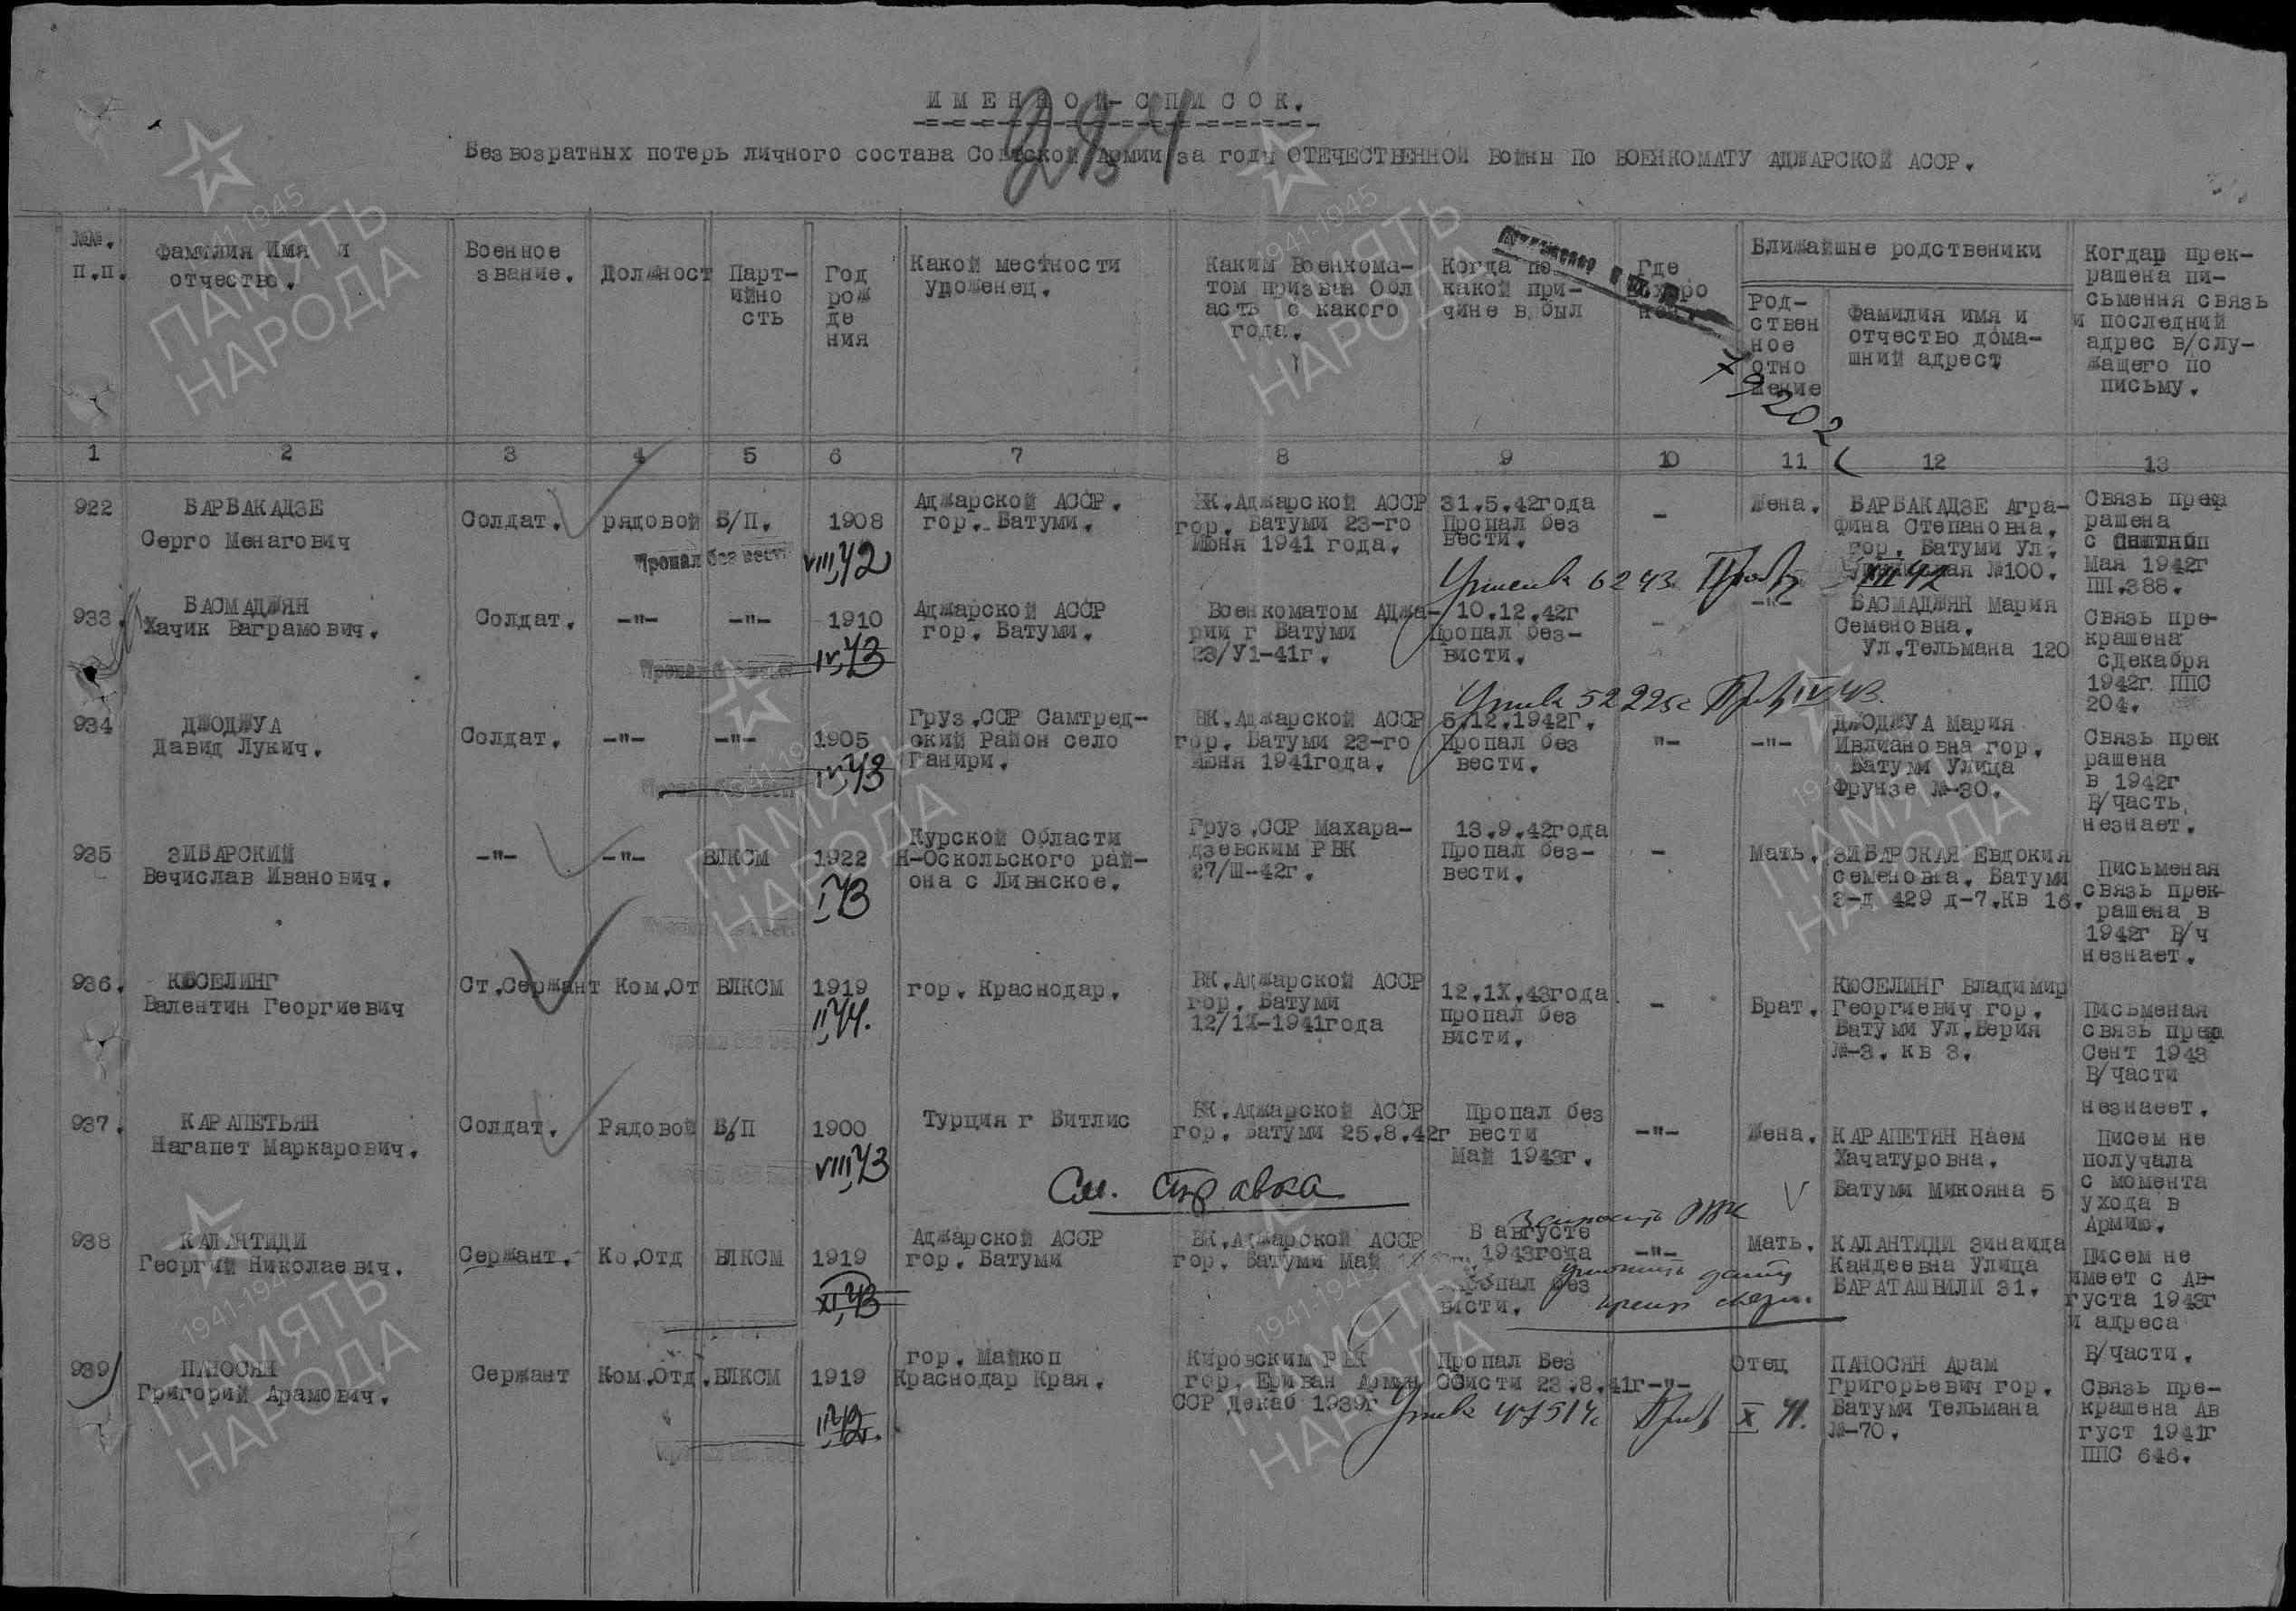 ИМЕННОЙ-СПИСОК.
284
Безвозратных потерь личного состава Советской Армии за годы ОТЕЧЕСТВЕННОЙ Войны По ВОЕНКОМАТУ АДЖАРСКОЙ АССР.
№№.
п.п.
Фамилия Имя и
отчество.
Военное
звание.
Должност
Парт-
ийно
сть
Год
рож
де
ния
Какой местности
уроженец.
Каким Военкома-
том призван Обл
асть с какого
года.
Когда по
какой при-
чине в.был
Где
похоро
нен.
Ближайшие родственики
Род-
ствен
ное
отно
шение
Фамилия имя и
отчество дома-
шний адрест
Когдап прек-
рашена пи-
сьмення связь
и последний
адрес в/слу-
жащего по
письму.
79202
1 2 3 4 5 6 7 8 9 10 11 12 13
922
БАРБАКАДЗЕ
Серго Менагович
Солдат.
рядовой
Б/П.
1908
Аджарской АССР.
гор. Батуми.
ВК.Аджарской АССР
гор. Батуми 23-го
Июня 1941 года.
31.5.42года
Пропал без
вести.
-
Жена.
БАРБАКАДЗЕ Агра-
фина Степановна.
гор. Батуми Ул.
№100.
Связь прек
рашена
с
Мая 1942г
ПП.388.
Пропал без вести
VIII,42
933.
БАСМАДЖЯН
Хачик Ваграмович.
Солдат.
-"-
-"-
1910
Аджарской АССР
гор. Батуми.
Военкоматом Аджа-
рии г Батуми
23/У1-41г.
10.12.42г
Пропал без-
висти.
-
-"-
БАСМАДЖЯН Мария
Семеновна.
Ул.Тельмана 120
Связь пре-
крашена
сДекабря
1942г. ППС
204.
Пропал без вести
IV,43
934
ДЖОДЖУА
Давид Лукич.
Солдат.
-"-
-"-
1905
Груз.ССР Самтред-
ский Район село
Ганири.
ВК.Аджарской АССР
гор. Батуми 23-го
Июня 1941года.
5.12.1942г.
Пропал без
вести.
"-
-"-
ДЖОДЖУА Мария
Ивлиановна гор.
Батуми Улица
Фрунзе №-30.
Связь прек
рашена
в 1942г
В/часть
незнает.
IV,43
935
ЗИБАРСКИЙ
Вечислав Иванович.
-"-
-"-
ВЛКСМ
1922
Курской Области
Н-Оскольского рай-
она с Ливнское.
Груз.ССР Махара-
дзевским РВК
27/Ш-42г.
13.9.42года
Пропал без-
вести.
-
Мать.
ЗИБАРСКАЯ Евдокия
семеновна. Батуми
З-д 429 д-7.Кв 16.
Письменая
связь прек-
рашена в
1942г В/ч
незнает.
I,43
936.
КЮСЕЛИНГ
Валентин Георгиевич
Ст.Сержант
Ком.От
ВЛКСМ
1919
гор. Краснодар.
ВК.Аджарской АССР
гор. Батуми
12/1Х-1941года
12.1Х.43года
пропал без
висти.
-
Брат.
КЮСЕЛИНГ Владимир
Георгиевич гор.
Батуми Ул.Берия
№-3. кв 3.
Письменая
связь прек
Сент 1943
В/части
незнаеет.
II,44.
937.
КАРАПЕТЬЯН
Нагапет Маркарович.
Солдат.
Рядовой
Б/П
1900
Турция г Битлис
ВК.Аджарской АССР
гор. Батуми 25.8.42г
Пропал без
вести
Май 1943г.
-"-
Жена.
КАРАПЕТЯН Наем
Хачатуровна.
Батуми Микояна 5
Писем не
получала
с момента
ухода в
Армию.
VIII,43
См. справка
938
КАЛАНТИДИ
Георгий Николаевич.
Сержант.
Ко.Отд
ВЛКСМ
1919
Аджарской АССР
гор. Батуми
ВК.Аджарской АССР
гор. Батуми Май
В августе
1943года
Пропал без
висти.
-"-
Мать.
КАЛАНТИДИ Зинаида
Кандеевна Улица
БАРАТАШВИЛИ 31.
Писем не
имеет с Ав-
густа 1943г
и адреса
В/части.
XI,43
939
ПАНОСЯН
Григорий Арамович.
Сержант
Ком.Отд.
ВЛКСМ
1919
гор. Майкоп
Краснодар Края.
Кировским РВК
гор. Ериван Армян
ССР Декаб 1939г
Пропал Без
Свисти 23.8.41г
-"-
Отец
ПАНОСЯН Арам
Григорьевич гор.
Батуми Тельмана
№-70.
Связь пре-
крашена Ав
густ 1941г
ППС 646.
X 41.
ПАМЯТЬ
НАРОДА
1941-1945